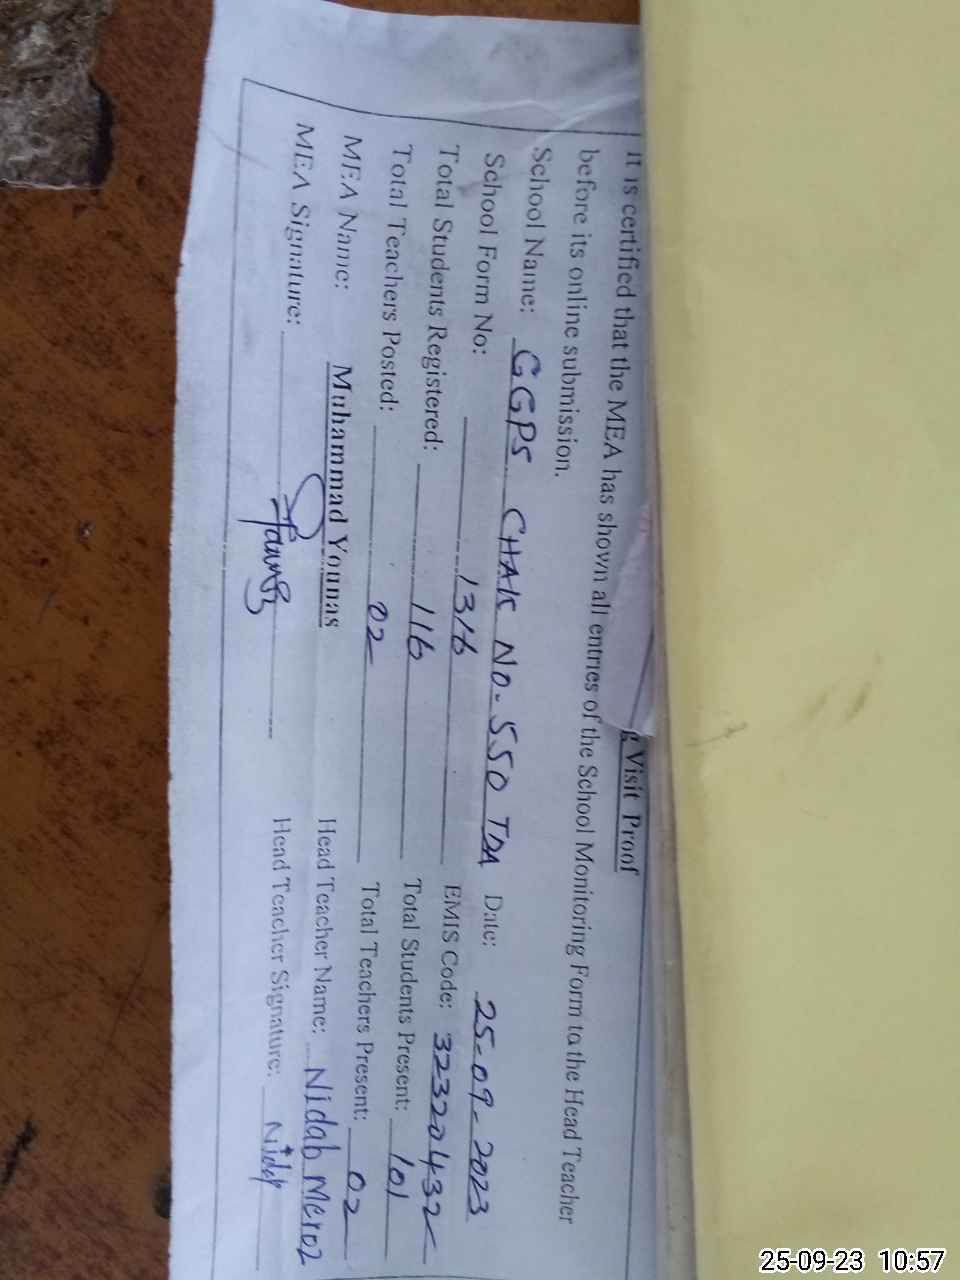 g Visit Proof
It is certified that the MEA has shown all entries of the School Monitoring Form to the Head Teacher
before its online submission.
School Name: GGPS CHAK NO. 550 TDA Date: 25-09-2023
School Form No: 1316 EMIS Code: 32320432
Total Students Registered: 116 Total Students Present: 101
Total Teachers Posted: 02 Total Teachers Present: 02
MEA Name: Muhammad Younas Head Teacher Name: Nidab
MEA Signature: Head Teacher Signature:
25-09-23 10:57